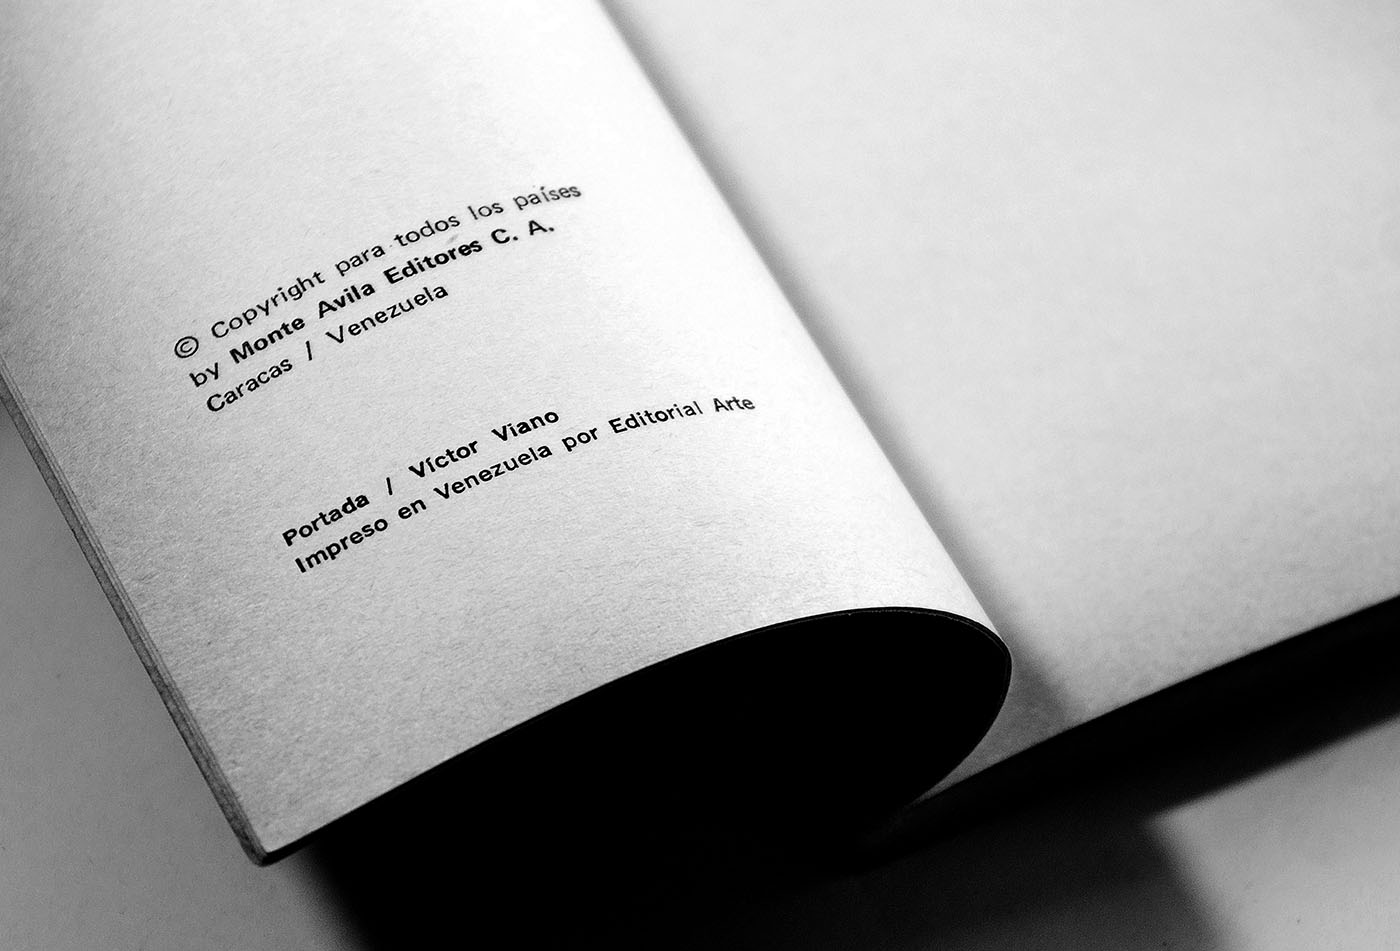 © Copyright para todos los países
by Monte Avila Editores C. A.
Caracas / Venezuela
Portada / Víctor Viano
Impreso en Venezuela por Editorial Arte